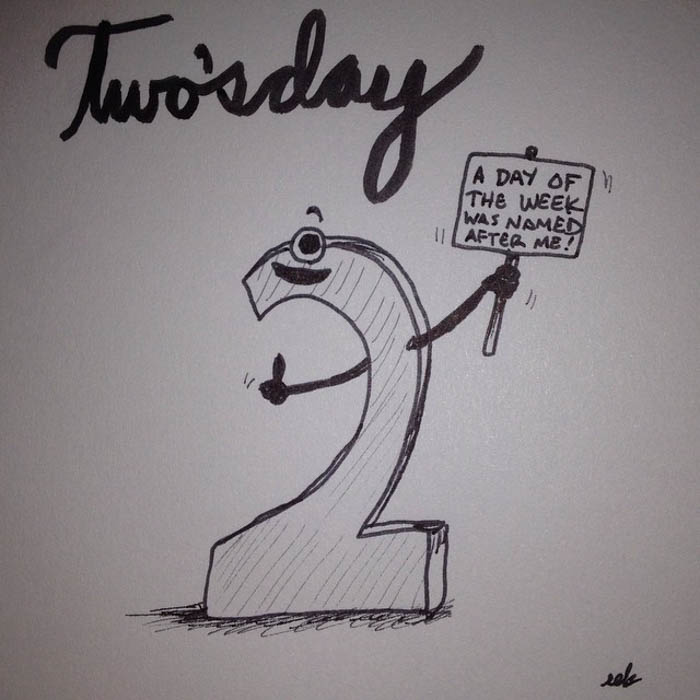 Two'sday
A DAY OF
THE WEEK
WAS NAMED
AFTER ME!